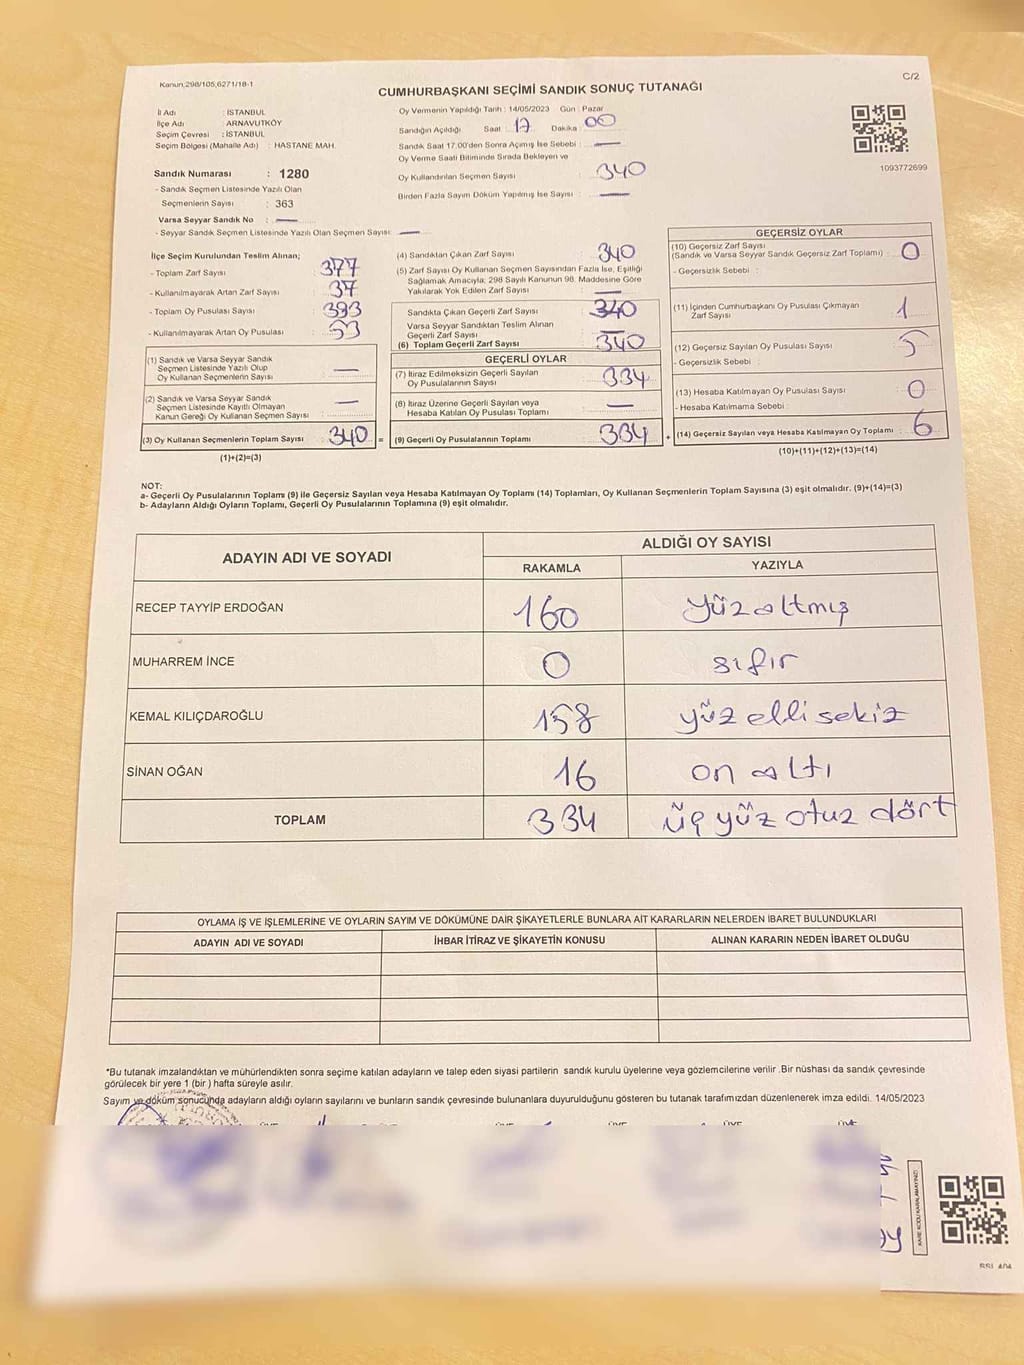 Kanun,298/105,6271/18-1
C/2
CUMHURBAŞKANI SEÇİMİ SANDIK SONUÇ TUTANAĞI
İl Adı : İSTANBUL
İlçe Adı : ARNAVUTKÖY
Seçim Çevresi : İSTANBUL
Seçim Bölgesi (Mahalle Adı) : HASTANE MAH.
Sandık Numarası : 1280
- Sandık Seçmen Listesinde Yazılı Olan
Seçmenlerin Sayısı : 363
Varsa Seyyar Sandık No : —
- Seyyar Sandık Seçmen Listesinde Yazılı Olan Seçmen Sayısı : —
Oy Vermenin Yapıldığı Tarih : 14/05/2023 Gün : Pazar
Sandığın Açıldığı Saat : 17 Dakika : 00
Sandık Saat 17:00'den Sonra Açımış İse Sebebi : —
Oy Verme Saati Bitiminde Sırada Bekleyen ve
Oy Kullandırılan Seçmen Sayısı : 340
Birden Fazla Sayım Döküm Yapılmış İse Sayısı : —
1093772699
İlçe Seçim Kurulundan Teslim Alınan;
- Toplam Zarf Sayısı : 377
- Kullanılmayarak Artan Zarf Sayısı : 37
- Toplam Oy Pusulası Sayısı : 393
- Kullanılmayarak Artan Oy Pusulası : 53
(1) Sandık ve Varsa Seyyar Sandık
Seçmen Listesinde Yazılı Olup
Oy Kullanan Seçmenlerin Sayısı : —
(2) Sandık ve Varsa Seyyar Sandık
Seçmen Listesinde Kayıtlı Olmayan
Kanun Gereği Oy Kullanan Seçmen Sayısı : —
(3) Oy Kullanan Seçmenlerin Toplam Sayısı : 340 =
(1)+(2)=(3)
(4) Sandıktan Çıkan Zarf Sayısı : 340
(5) Zarf Sayısı Oy Kullanan Seçmen Sayısından Fazla İse, Eşitliği
Sağlamak Amacıyla; 298 Sayılı Kanunun 98. Maddesine Göre
Yakılarak Yok Edilen Zarf Sayısı : —
Sandıkta Çıkan Geçerli Zarf Sayısı : 340
Varsa Seyyar Sandıktan Teslim Alınan
Geçerli Zarf Sayısı : —
(6) Toplam Geçerli Zarf Sayısı : 340
GEÇERLİ OYLAR
(7) İtiraz Edilmeksizin Geçerli Sayılan
Oy Pusulalarının Sayısı : 334
(8) İtiraz Üzerine Geçerli Sayılan veya
Hesaba Katılan Oy Pusulası Toplamı : —
(9) Geçerli Oy Pusulalarının Toplamı : 334
GEÇERSİZ OYLAR
(10) Geçersiz Zarf Sayısı
(Sandık ve Varsa Seyyar Sandık Geçersiz Zarf Toplamı) : 0
- Geçersizlik Sebebi :
(11) İçinden Cumhurbaşkanı Oy Pusulası Çıkmayan
Zarf Sayısı : 1
(12) Geçersiz Sayılan Oy Pusulası Sayısı : 5
- Geçersizlik Sebebi :
(13) Hesaba Katılmayan Oy Pusulası Sayısı : 0
- Hesaba Katılmama Sebebi :
(14) Geçersiz Sayılan veya Hesaba Katılmayan Oy Toplamı : 6
(10)+(11)+(12)+(13)=(14)
NOT:
a- Geçerli Oy Pusulalarının Toplamı (9) ile Geçersiz Sayılan veya Hesaba Katılmayan Oy Toplamı (14) Toplamları, Oy Kullanan Seçmenlerin Toplam Sayısına (3) eşit olmalıdır. (9)+(14)=(3)
b- Adayların Aldığı Oyların Toplamı, Geçerli Oy Pusulalarının Toplamına (9) eşit olmalıdır.
ADAYIN ADI VE SOYADI ALDIĞI OY SAYISI
RAKAMLA YAZIYLA
RECEP TAYYİP ERDOĞAN 160 yüzaltmış
MUHARREM İNCE 0 sıfır
KEMAL KILIÇDAROĞLU 158 yüz elli sekiz
SİNAN OĞAN 16 on altı
TOPLAM 334 üç yüz otuz dört
OYLAMA İŞ VE İŞLEMLERİNE VE OYLARIN SAYIM VE DÖKÜMÜNE DAİR ŞİKAYETLERLE BUNLARA AİT KARARLARIN NELERDEN İBARET BULUNDUKLARI
ADAYIN ADI VE SOYADI İHBAR İTİRAZ VE ŞİKAYETİN KONUSU ALINAN KARARIN NEDEN İBARET OLDUĞU
*Bu tutanak imzalandıktan ve mühürlendikten sonra seçime katılan adayların ve talep eden siyasi partilerin sandık kurulu üyelerine veya gözlemcilerine verilir .Bir nüshası da sandık çevresinde
görülecek bir yere 1 (bir ) hafta süreyle asılır.
Sayım ve döküm sonucunda adayların aldığı oyların sayılarını ve bunların sandık çevresinde bulunanlara duyurulduğunu gösteren bu tutanak tarafımızdan düzenlenerek imza edildi. 14/05/2023
KARE KODU KARALAMAYINIZ!